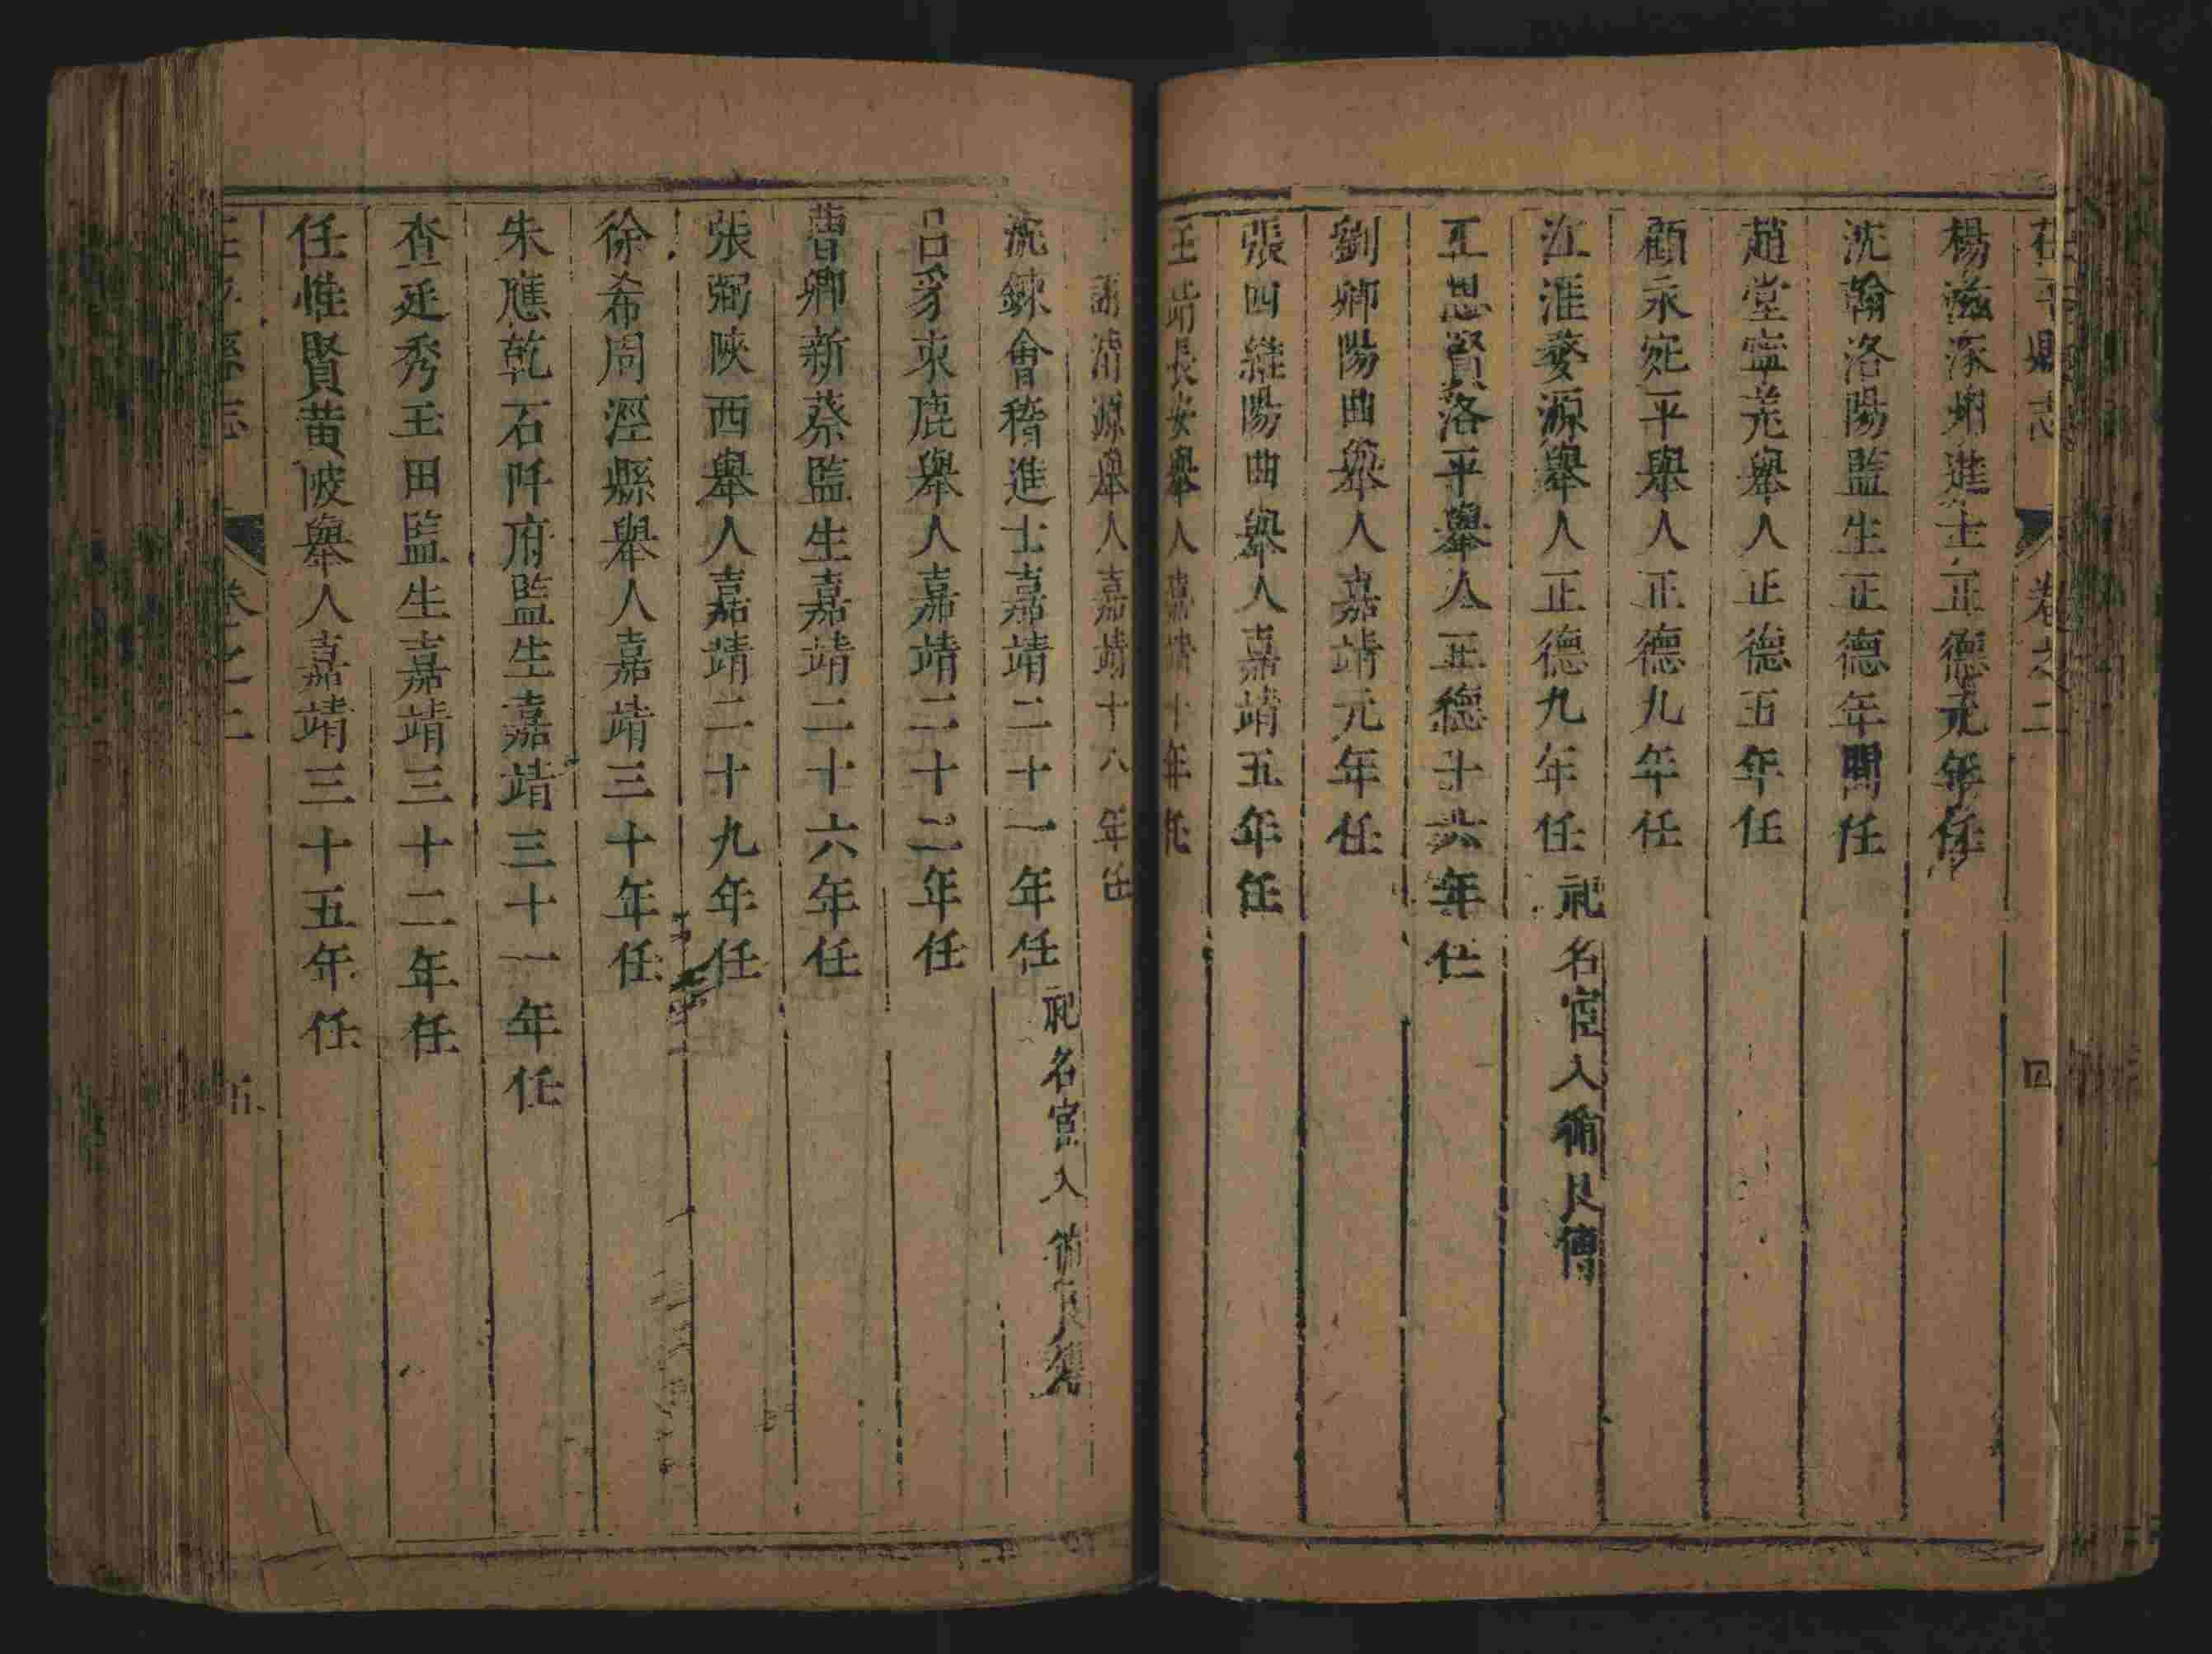 茌平縣志 卷之二 四
楊滋涿州進士正德元年任
沈翰洛陽監生正德年間任
趙堂寧羌舉人正德五年任
顧永宛平舉人正德九年任
江滙婺源舉人正德九年任 祀名宦入循良傳
王思賢洛平舉人正德十六年任
劉卿陽曲舉人嘉靖元年任
張四維陽曲舉人嘉靖五年任
王 長安舉人嘉靖十年任
清源舉人嘉靖十八年任
沈鍊會稽進士嘉靖二十一年任 祀名宦入循良傳
呂豸束鹿舉人嘉靖二十二年任
曹卿新蔡監生嘉靖二十六年任
張弼陝西舉人嘉靖二十九年任
徐希周涇縣舉人嘉靖三十年任
朱應乾石阡府監生嘉靖三十一年任
查廷秀玉田監生嘉靖三十二年任
任惟賢黃陂舉人嘉靖三十五年任
茌平縣志 卷之二 五